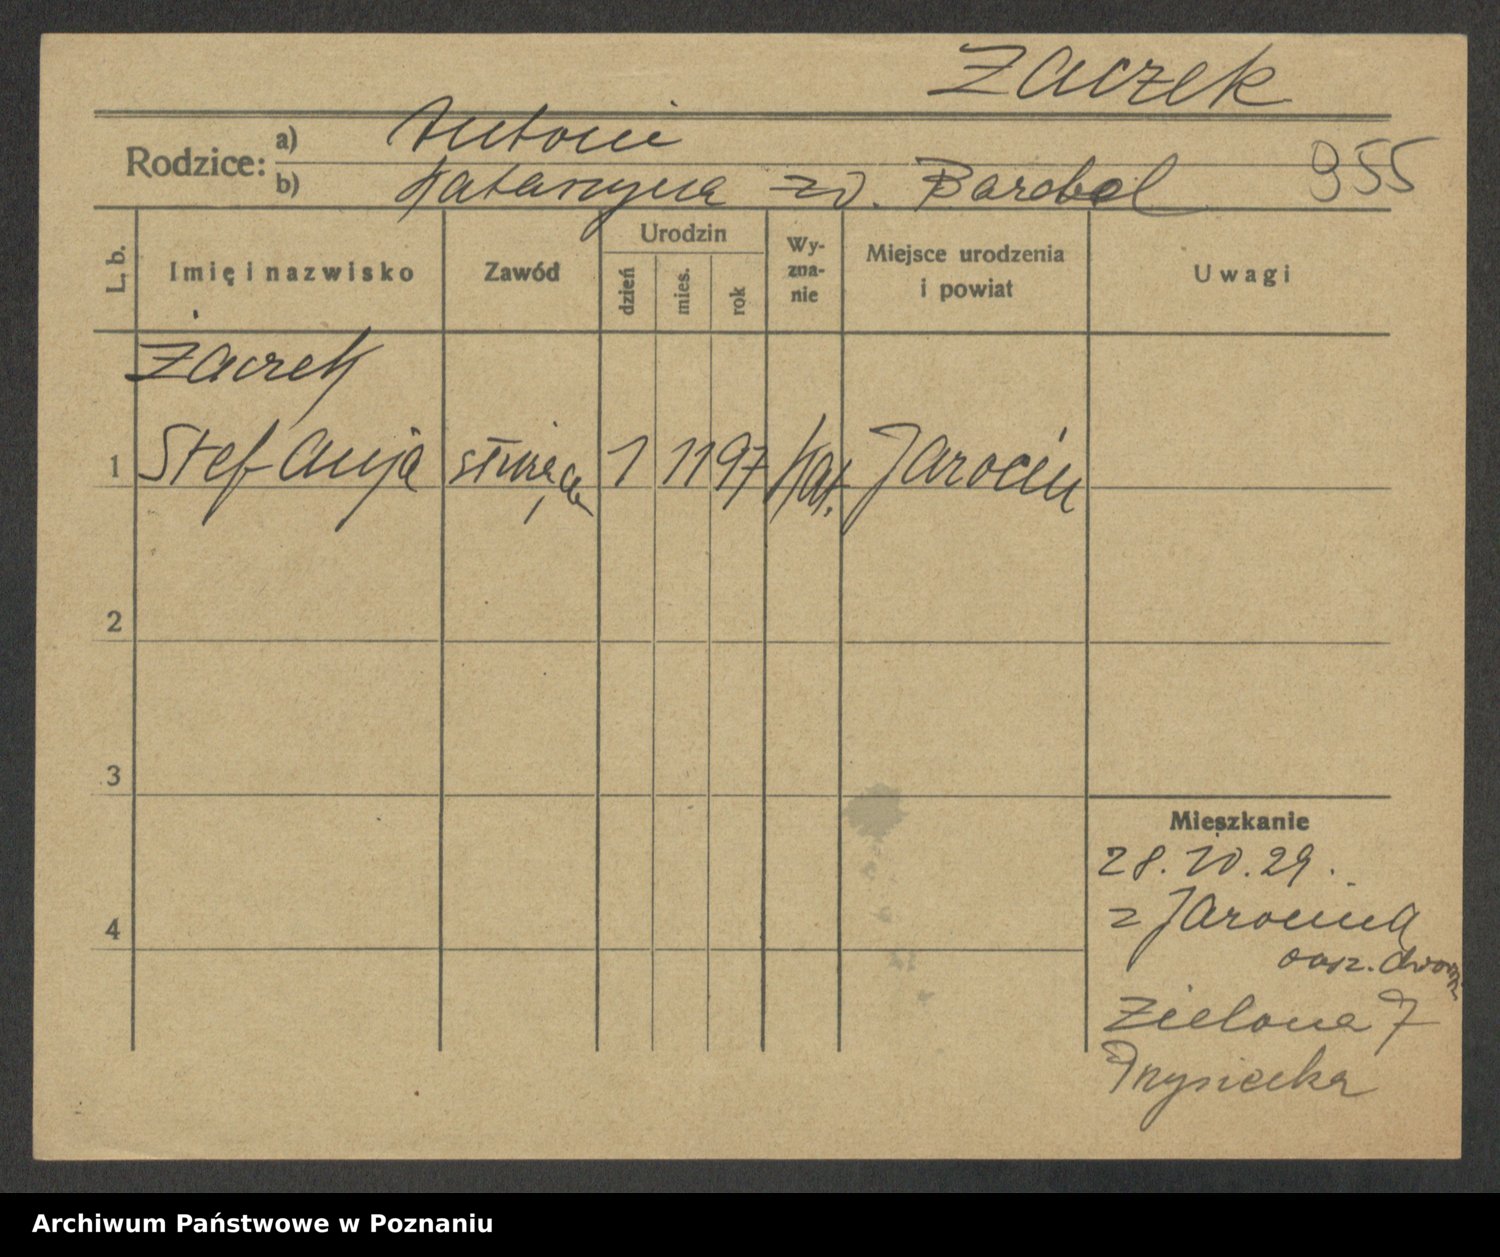 Żaczek
Rodzice: a) Antoni
b) Katarzyna zd. Barebol
955
L. b.
Imię i nazwisko
Zawód
Urodzin
dzień
mies.
rok
Wy-
zna-
nie
Miejsce urodzenia
i powiat
Uwagi
Żaczek
1 Stefanja służąca 1 11 97 kat. Jarocin
2
3
4
Mieszkanie
28.10.29.
z Jarocina
Zielona 7
Archiwum Państwowe w Poznaniu